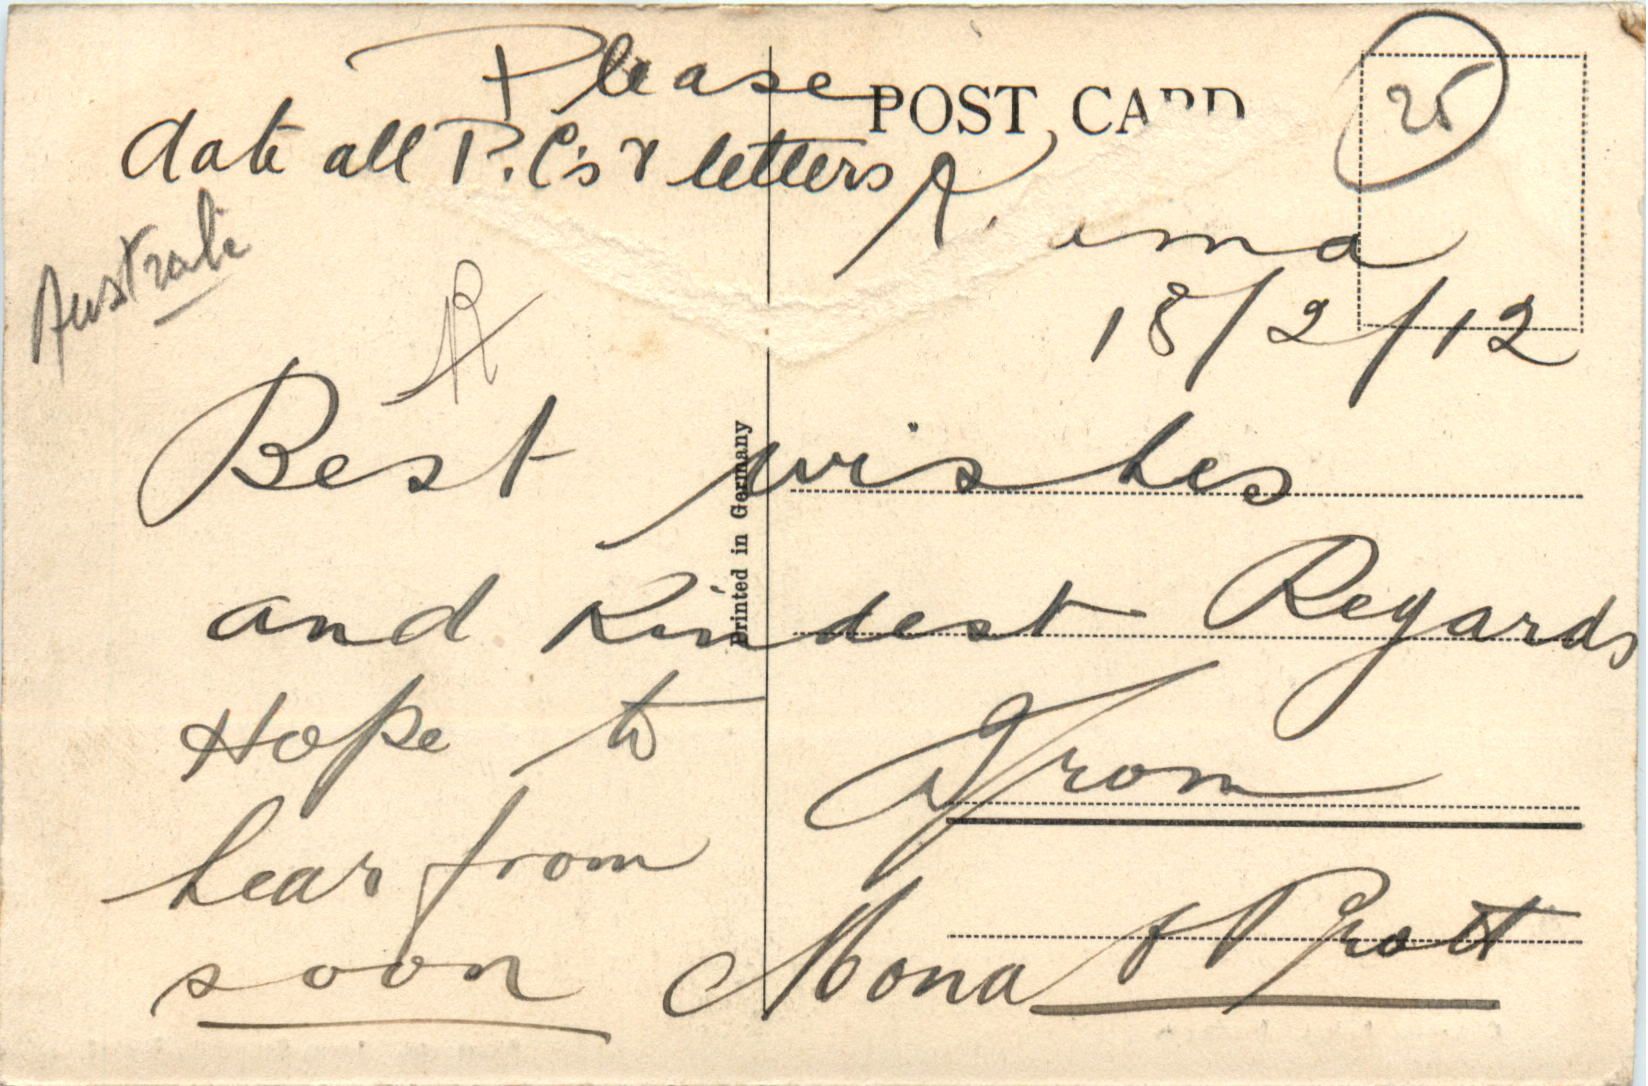 Please
date all P.C's & letters
POST CARD
25
Australi
18/2/12
R
Best wishes
and Kindest Regards
Hope to
hear from
soon
From
Mona & Pratt
Printed in Germany